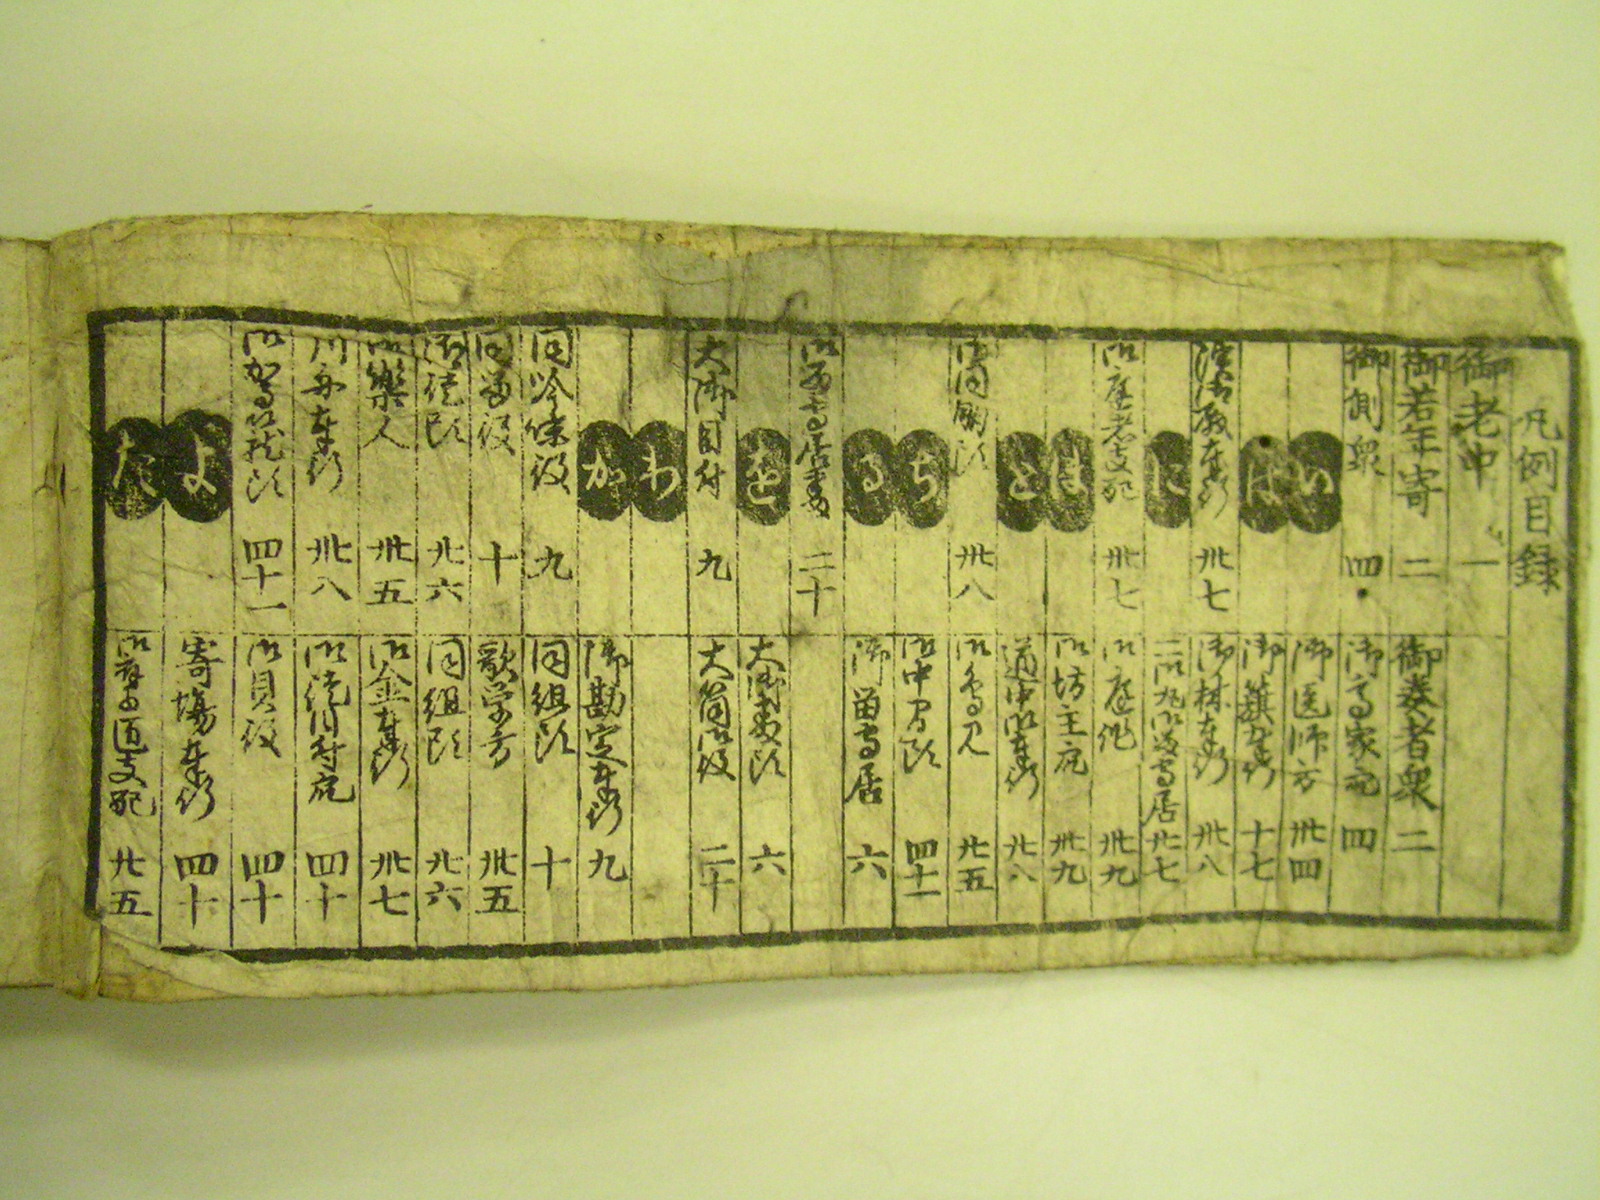 凡例目録
御老中 一
御若年寄 二
御奏者衆 二
御側衆 四
御高家 四
い
御医師方 卅四
は
御簱奉行 十七
濱御殿奉行 卅七
御林奉行 卅八
に
二御丸御留守居 卅七
御庭者支配 卅七
御庭作 卅九
ほ
御坊主 卅九
と
道中御奉行 卅八
御同朋頭 卅八
御鳥見 廿五
ち
御中間頭 四十一
る
御留守居 六
二十
を
大御番頭 六
大御目付 九
大筒御役 二十
わ
か
御勘定奉行 九
同吟味役 九
同組頭 十
同留役 十
歌学方 卅五
御徒頭 廿六
同組頭 廿六
御樂人 卅五
御金奉行 卅七
川舟奉行 卅八
御徒目付 四十
御駕籠頭 四十一
御貝役 四十
よ
寄場奉行 四十
た
支配 廿五